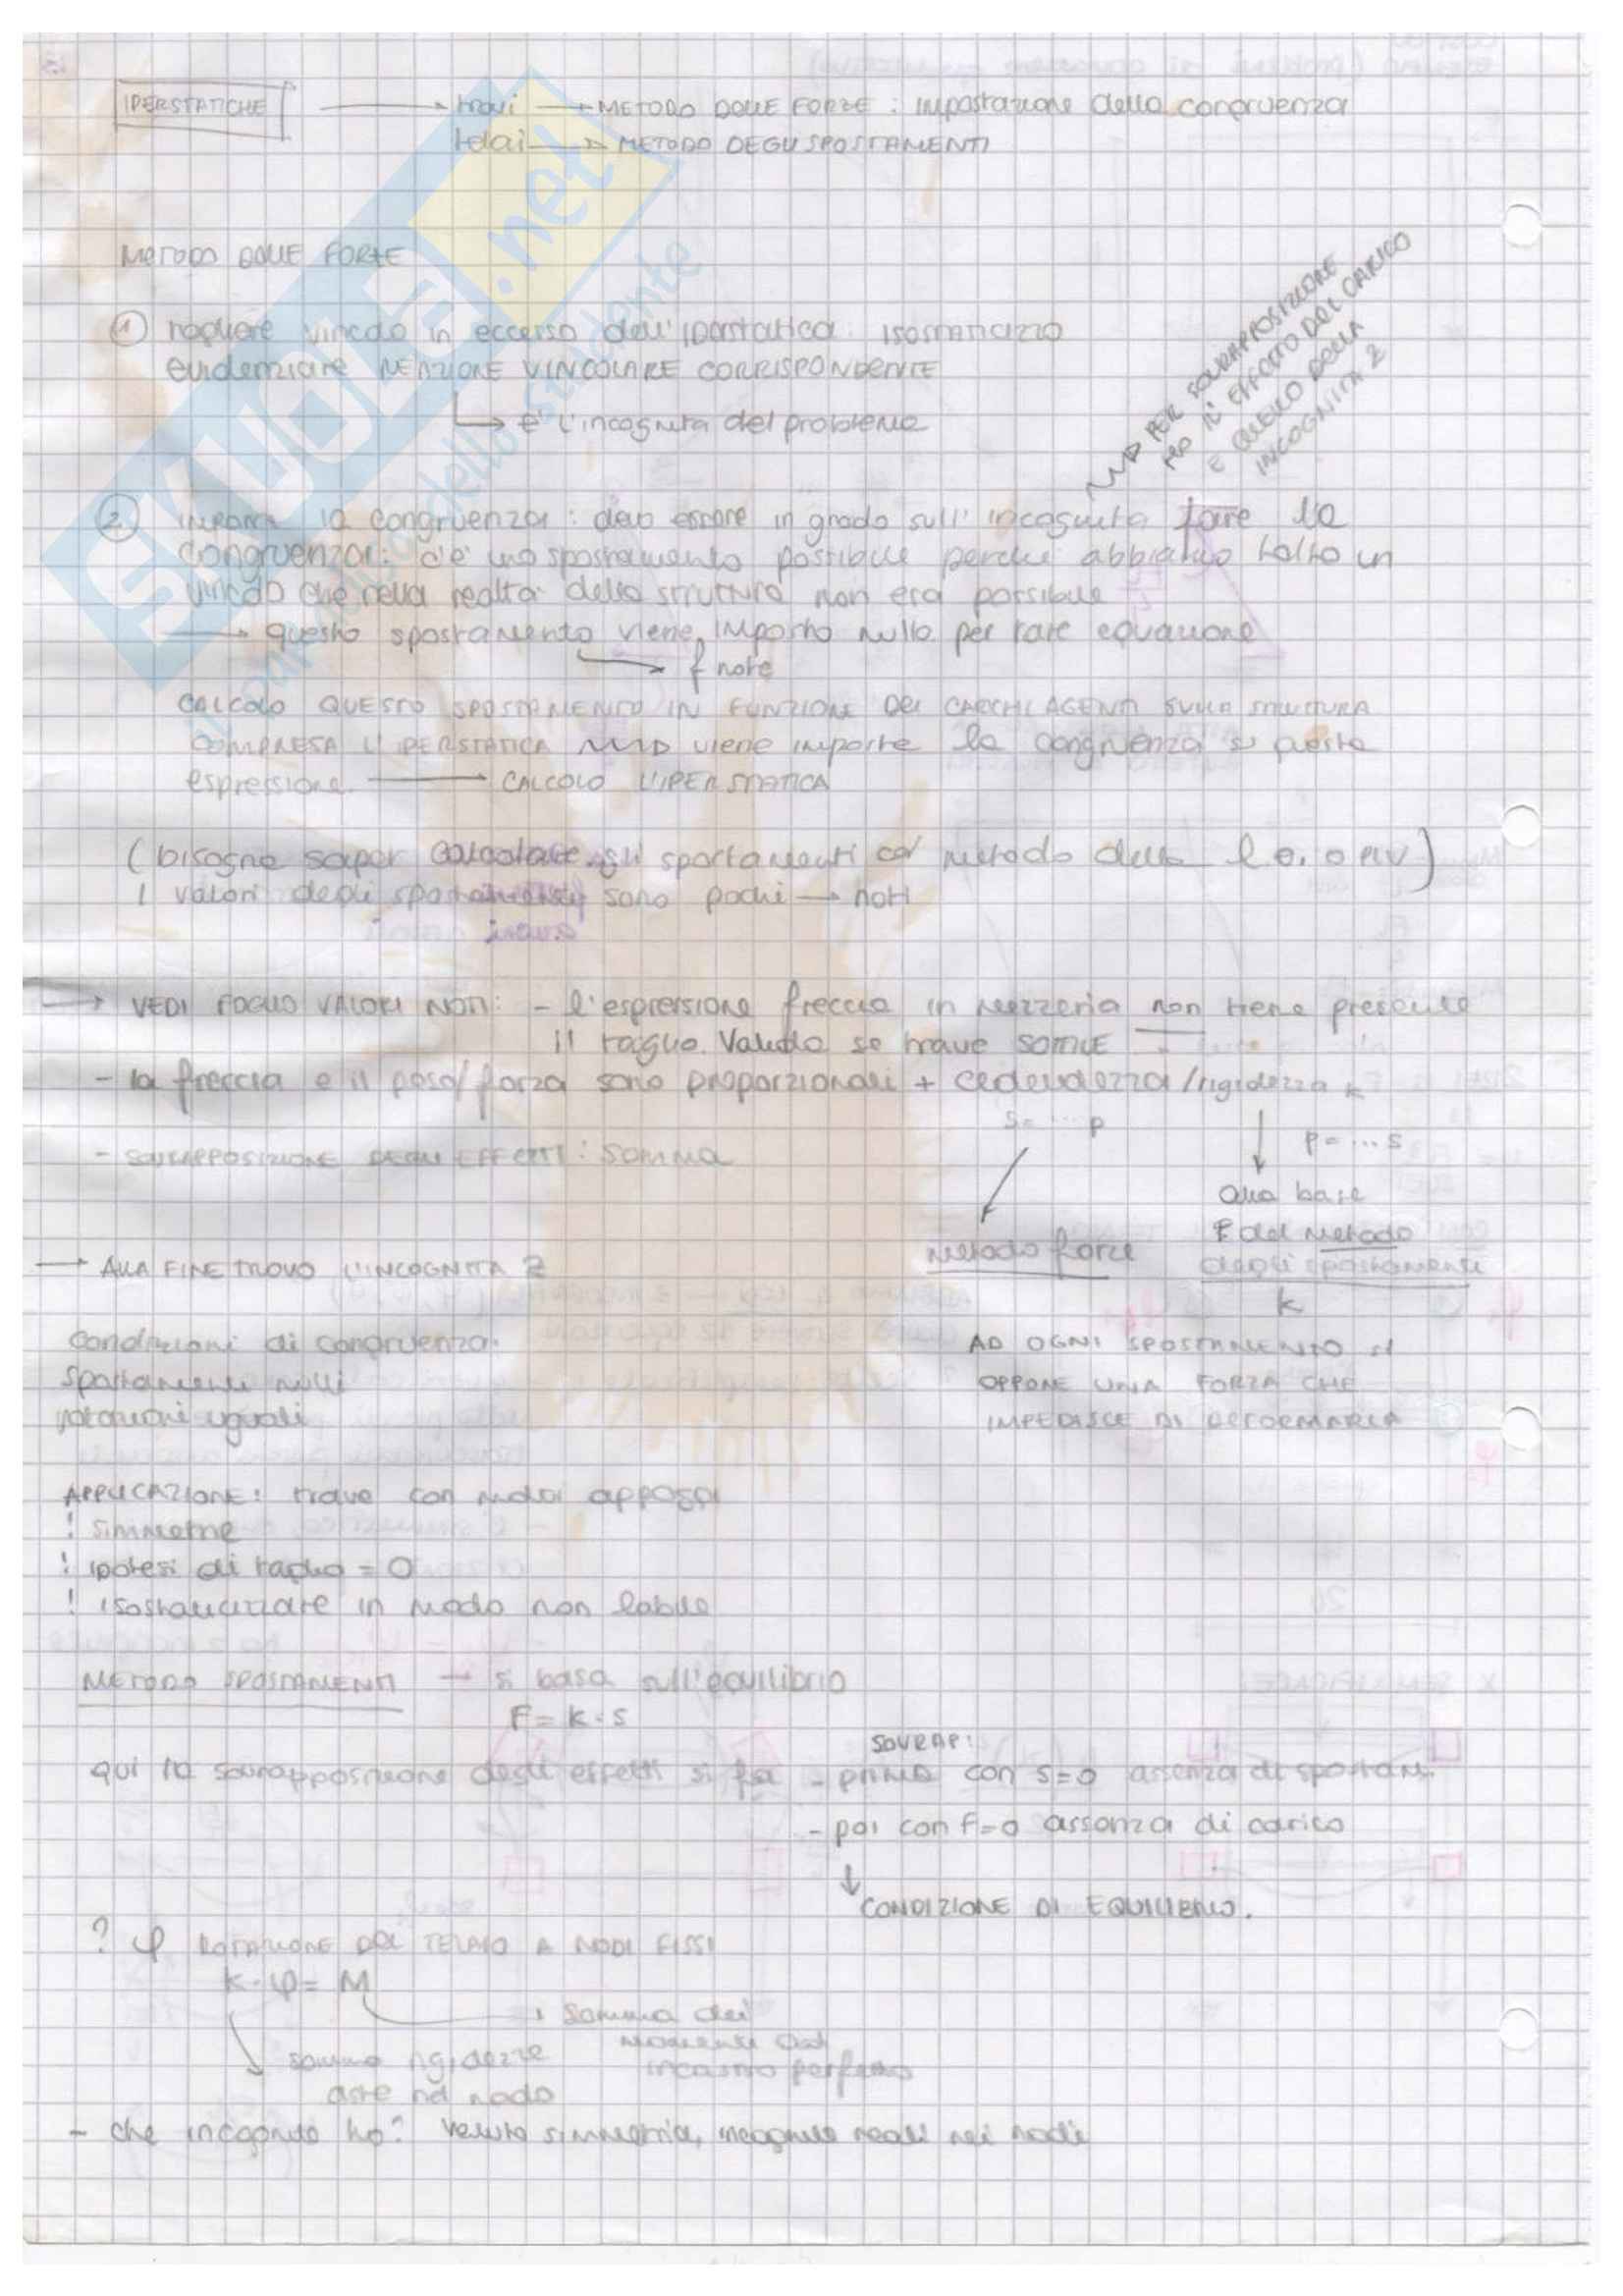 IPERSTATICHE → travi → METODO DELLE FORZE : impostazione della congruenza
telai → METODO DEGLI SPOSTAMENTI
METODO DELLE FORZE
① togliere vincolo in eccesso dell'iperstatica : ISOSTATICIZZO
evidenziare REAZIONE VINCOLARE CORRISPONDENTE
↳ è l'incognita del problema
PER SOVRAPPOSIZIONE
HO IL EFFETTO DEL CARICO
E QUELLO DELLA
INCOGNITA Z
② la congruenza : devo essere in grado sull'incognita fare la
congruenza: c'è uno spostamento possibile perché abbiamo tolto un
vincolo che nella realtà della struttura non era possibile
→ questo spostamento viene imposto nullo per fare equazione
→ f note
CALCOLO QUESTO SPOSTAMENTO IN FUNZIONE DEI CARICHI AGENTI SULLA STRUTTURA
COMPRESA L'IPERSTATICA viene imposta la congruenza su questa
espressione → CALCOLO L'IPERSTATICA
(bisogna saper calcolare gli spostamenti col metodo della l.e. o PLV)
I valori degli spostamenti sono pochi → noti
→ VEDI FOGLIO VALORI NOTI: - l'espressione freccia in mezzeria non tiene presente
il taglio. Valido se trave SOTTILE
- la freccia e il peso/forza sono proporzionali + cedevolezza/rigidezza k
s= ... p
p = ... s
- SOVRAPPOSIZIONE DEGLI EFFETTI : SOMMA
alla base
del metodo
degli spostamenti
metodo forze
→ ALLA FINE TROVO L'INCOGNITA Z
k
Condizioni di congruenza:
spostamenti nulli
rotazioni uguali
AD OGNI SPOSTAMENTO SI
OPPONE UNA FORZA CHE
IMPEDISCE DI DEFORMARLA
APPLICAZIONE: trave con molti appoggi
! simmetrie
! ipotesi di taglio = 0
! isostaticizzare in modo non labile
METODO SPOSTAMENTI → si basa sull'equilibrio
F = k · s
SOVRAP:
qui la sovrapposizione degli effetti si fa - prima con s=0 assenza di spostam.
- poi con F=0 assenza di carico
↓ CONDIZIONE DI EQUILIBRIO.
? φ ROTAZIONE DEL TELAIO A NODI FISSI
k · φ = M
somma dei
momenti
incastro perfetto
somma rigidezze
aste nel nodo
- che incognite ho? simmetria, incognite reali nei nodi
skuola.net